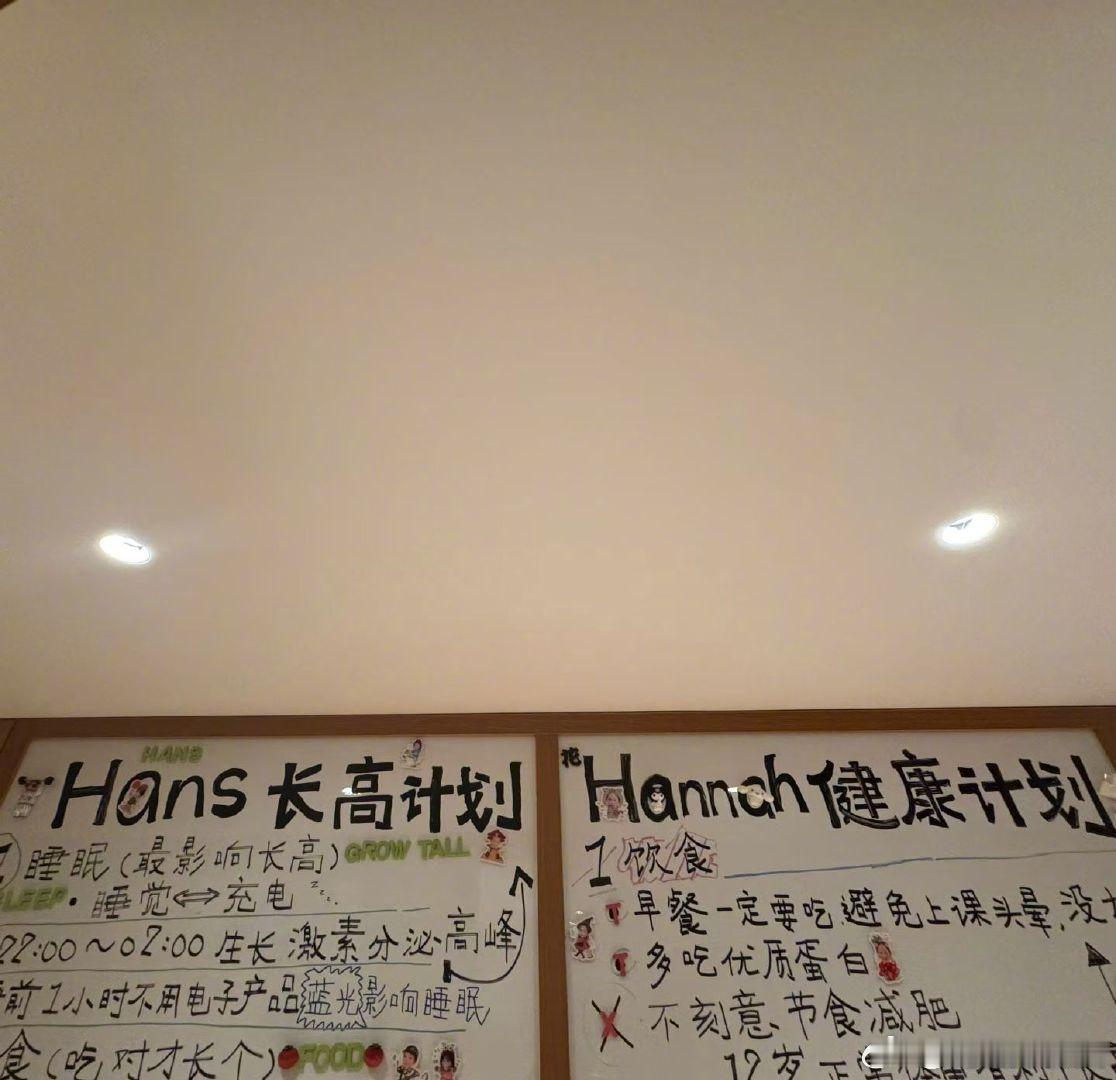 HANS
Hans 长高计划
1 睡眠(最影响长高) GROW TALL
SLEEP · 睡觉⇔充电 zzz
22:00~02:00 生长激素分泌高峰
前1小时不用电子产品 蓝光影响睡眠
食(吃对才长个) FOOD
花
Hannah 健康计划
1 饮食
早餐一定要吃,避免上课头晕,没
多吃优质蛋白
X 不刻意节食减肥
12岁正常体重